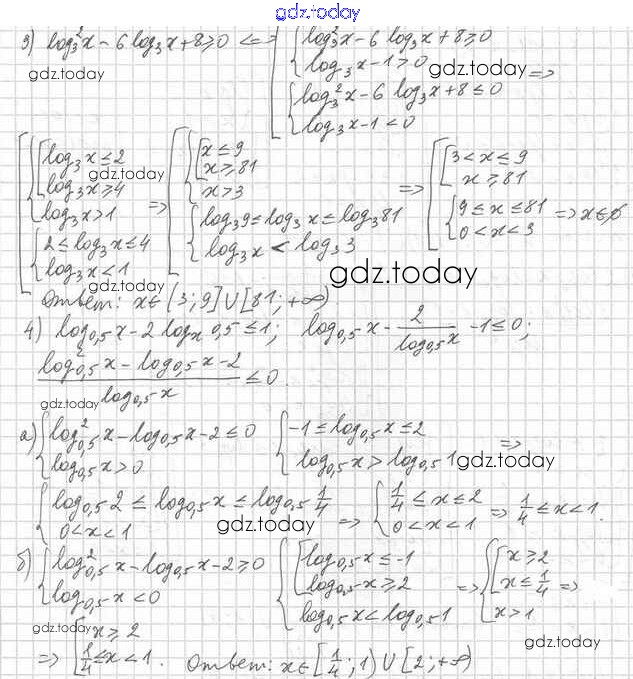 gdz.today
3) log₃²x - 6 log₃x + 8 ≥ 0 <=> [ { log₃²x - 6 log₃x + 8 ≥ 0
gdz.today { log₃x - 1 > 0 gdz.today =>
{ log₃²x - 6 log₃x + 8 ≤ 0
{ log₃x - 1 < 0
[ { [ log₃x ≤ 2 gdz.today
log₃x ≥ 4
log₃x > 1
{ 2 ≤ log₃x ≤ 4
log₃x < 1
gdz.today
=> [ { [ x ≤ 9
x ≥ 81
x > 3
{ log₃9 ≤ log₃x ≤ log₃81
log₃x < log₃3
=> [ [ 3 < x ≤ 9
x ≥ 81
{ 9 ≤ x ≤ 81
0 < x < 3 => x ∈ ∅
gdz.today
Ответ: x ∈ (3; 9] ∪ [81; +∞)
4) log₀,₅x - 2 logₓ0,5 ≤ 1; log₀,₅x - 2/log₀,₅x - 1 ≤ 0;
(log²₀,₅x - log₀,₅x - 2)/log₀,₅x ≤ 0.
gdz.today
а) { log²₀,₅x - log₀,₅x - 2 ≤ 0 { -1 ≤ log₀,₅x ≤ 2 =>
{ log₀,₅x > 0 { log₀,₅x > log₀,₅1
gdz.today
{ log₀,₅2 ≤ log₀,₅x ≤ log₀,₅ 1/4 => { 1/4 ≤ x ≤ 2 => 1/4 ≤ x < 1.
{ 0 < x < 1 gdz.today { 0 < x < 1
б) { log²₀,₅x - log₀,₅x - 2 ≥ 0 { [ log₀,₅x ≤ -1 => { [ x ≥ 2 =>
{ log₀,₅x < 0 log₀,₅x ≥ 2 x ≤ 1/4
log₀,₅x < log₀,₅1 x > 1
gdz.today gdz.today
=> [ x ≥ 2
1/4 ≤ x < 1. Ответ: x ∈ [1/4; 1) ∪ [2; +∞)